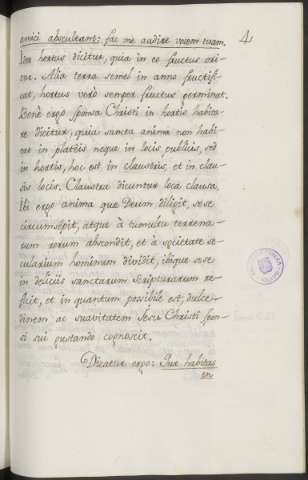 4
amici abscultant: fac me audire vocem tuam.
Ideo hortus dicitur, quia in eo fructus ori-
tur. Alia terra semel in anno fructifi-
cat, hortus verò semper fructus germinat.
Benè ergo sponsa Christi in hortis habita-
re dicitur, quia sancta anima non habi-
tat in platéis neque in locis publicis, sed
in hortis, hoc est in claustris, et in clau-
sis locis. Claustra dicuntur loca clausa,
ibi ergo anima que Deum diligit, sese
circumsepit, atque à tumultu terrena-
rum rerum abscondit, et à societate se-
cularium hominum dividit, ibique sese
in deliciis sanctarum Scripturarum re-
ficit, et in quantum possibile est, dulce-
dinem ac suavitatem Jesu Christi spon-
si sui gustando cognoscit.
Dicatur ergo: Quæ habitas
in